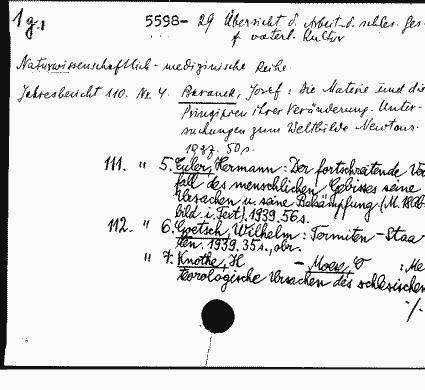 1 g.1 5598- 29 Übersicht d. Arbeit. d. schles. Ges
f vaterl. Kultur
Naturwissenschaftlich - medizinische Reihe.
Jahresbericht 110. Nr. 4. Baranek, Josef: Die Materie und die
Prinzipien ihrer Veränderung. Unter-
suchungen zum Weltbilde Newtons.
1937. 50 s.
111. " 5. Euler, Hermann: Der fortschreitende Ver
fall des menschlichen Gebisses seine
Ursachen u. seine Bekämpfung (M. 18 Ab-
bild. i. Text). 1939. 56 s.
112. " 6. Goetsch, Wilhelm: Termiten-Staa
ten. 1939. 35 s., obr.
" 7. Knothe, H - Moese, O : Me
teorologische Ursachen des schlesischen
-/.